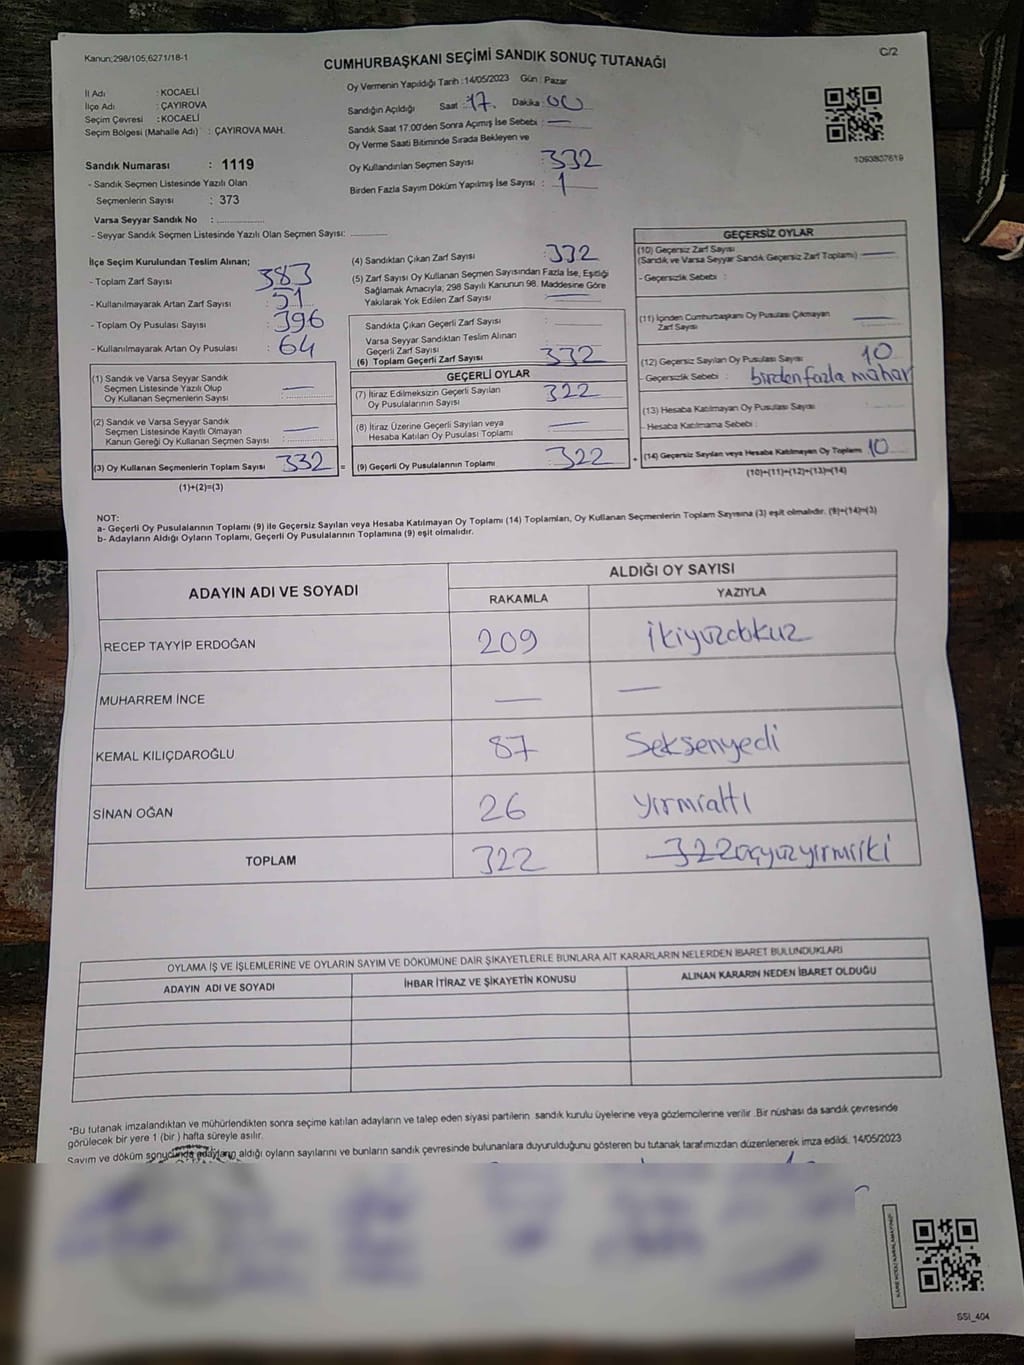 Kanun;298/105;6271/18-1
CUMHURBAŞKANI SEÇİMİ SANDIK SONUÇ TUTANAĞI
C/2
İl Adı : KOCAELİ
İlçe Adı : ÇAYIROVA
Seçim Çevresi : KOCAELİ
Seçim Bölgesi (Mahalle Adı) : ÇAYIROVA MAH.
Sandık Numarası : 1119
- Sandık Seçmen Listesinde Yazılı Olan
Seçmenlerin Sayısı : 373
Varsa Seyyar Sandık No :
- Seyyar Sandık Seçmen Listesinde Yazılı Olan Seçmen Sayısı:
Oy Vermenin Yapıldığı Tarih :14/05/2023 Gün : Pazar
Sandığın Açıldığı Saat : 17. Dakika : 00
Sandık Saat 17.00'den Sonra Açımış İse Sebebi : —
Oy Verme Saati Bitiminde Sırada Bekleyen ve
Oy Kullandırılan Seçmen Sayısı : 332
Birden Fazla Sayım Döküm Yapılmış İse Sayısı : 1
1093807619
İlçe Seçim Kurulundan Teslim Alınan;
- Toplam Zarf Sayısı : 383
- Kullanılmayarak Artan Zarf Sayısı : 51
- Toplam Oy Pusulası Sayısı : 396
- Kullanılmayarak Artan Oy Pusulası : 64
(1) Sandık ve Varsa Seyyar Sandık
Seçmen Listesinde Yazılı Olup
Oy Kullanan Seçmenlerin Sayısı : —
(2) Sandık ve Varsa Seyyar Sandık
Seçmen Listesinde Kayıtlı Olmayan
Kanun Gereği Oy Kullanan Seçmen Sayısı : —
(3) Oy Kullanan Seçmenlerin Toplam Sayısı 332 =
(1)+(2)=(3)
(4) Sandıktan Çıkan Zarf Sayısı : 332
(5) Zarf Sayısı Oy Kullanan Seçmen Sayısından Fazla İse, Eşitliği
Sağlamak Amacıyla; 298 Sayılı Kanunun 98. Maddesine Göre
Yakılarak Yok Edilen Zarf Sayısı : —
Sandıkta Çıkan Geçerli Zarf Sayısı :
Varsa Seyyar Sandıktan Teslim Alınan
Geçerli Zarf Sayısı :
(6) Toplam Geçerli Zarf Sayısı : 332
GEÇERLİ OYLAR
(7) İtiraz Edilmeksizin Geçerli Sayılan
Oy Pusulalarının Sayısı : 322
(8) İtiraz Üzerine Geçerli Sayılan veya
Hesaba Katılan Oy Pusulası Toplamı : —
(9) Geçerli Oy Pusulalarının Toplamı 322 +
GEÇERSİZ OYLAR
(10) Geçersiz Zarf Sayısı
(Sandık ve Varsa Seyyar Sandık Geçersiz Zarf Toplamı) : —
- Geçersizlik Sebebi :
(11) İçinden Cumhurbaşkanı Oy Pusulası Çıkmayan
Zarf Sayısı : —
(12) Geçersiz Sayılan Oy Pusulası Sayısı : 10
- Geçersizlik Sebebi : birden fazla mühür
(13) Hesaba Katılmayan Oy Pusulası Sayısı :
- Hesaba Katılmama Sebebi :
(14) Geçersiz Sayılan veya Hesaba Katılmayan Oy Toplamı 10
(10)+(11)+(12)+(13)=(14)
NOT:
a- Geçerli Oy Pusulalarının Toplamı (9) ile Geçersiz Sayılan veya Hesaba Katılmayan Oy Toplamı (14) Toplamları, Oy Kullanan Seçmenlerin Toplam Sayısına (3) eşit olmalıdır. (9)+(14)=(3)
b- Adayların Aldığı Oyların Toplamı, Geçerli Oy Pusulalarının Toplamına (9) eşit olmalıdır.
ADAYIN ADI VE SOYADI
ALDIĞI OY SAYISI
RAKAMLA YAZIYLA
RECEP TAYYİP ERDOĞAN 209 ikiyüzdokuz
MUHARREM İNCE — —
KEMAL KILIÇDAROĞLU 87 Seksenyedi
SİNAN OĞAN 26 yirmialtı
TOPLAM 322 322 üçyüzyirmiiki
OYLAMA İŞ VE İŞLEMLERİNE VE OYLARIN SAYIM VE DÖKÜMÜNE DAİR ŞİKAYETLERLE BUNLARA AİT KARARLARIN NELERDEN İBARET BULUNDUKLARI
ADAYIN ADI VE SOYADI İHBAR İTİRAZ VE ŞİKAYETİN KONUSU ALINAN KARARIN NEDEN İBARET OLDUĞU
*Bu tutanak imzalandıktan ve mühürlendikten sonra seçime katılan adayların ve talep eden siyasi partilerin sandık kurulu üyelerine veya gözlemcilerine verilir .Bir nüshası da sandık çevresinde
görülecek bir yere 1 (bir ) hafta süreyle asılır.
Sayım ve döküm sonucunda adayların aldığı oyların sayılarını ve bunların sandık çevresinde bulunanlara duyurulduğunu gösteren bu tutanak tarafımızdan düzenlenerek imza edildi. 14/05/2023
SSI_404